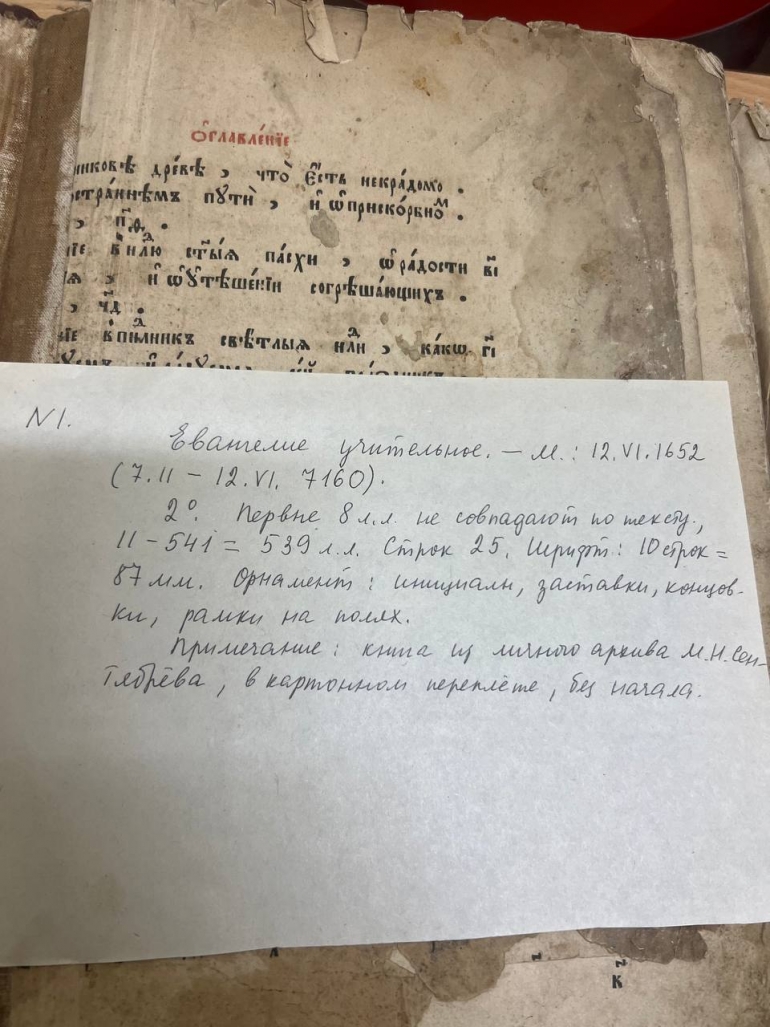 Ѻ҆главле́нїе
никовѣ дре́вѣ , что̀ є҆́сть некра́домо .
стра́ннѣмъ пꙋтѝ , и҆ ѡ҆приско́рбноⷨ .
, п҃ѳ .
нїе в̾нлⷣю ст҃ы́ѧ па́схи , ѡ҆ра́дости в҃і
ѧ , и҆ ѡ҆ᲂу҆тѣше́нїи согрѣша́ющихъ .
, ч҃д .
нїе в̾пⷣмлникъ свѣ́тлыѧ нлⷣи , ка́кѡ г҃і
N1.
Евангелие учительное. – М.: 12.VI.1652
(7.II – 12.VI. 7160).
2°. Первые 8 л.л. не совпадают по тексту,
II – 541 = 539 л.л. Строк 25. Шрифт: 10 строк =
87 мм. Орнамент: инициалы, заставки, концов-
ки, рамки на полях.
Примечание: книга из личного архива М.Н. Сен-
тябрёва, в картонном переплёте, без начала.
К